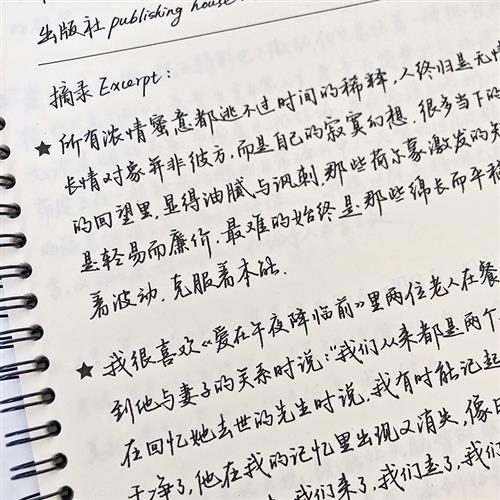 出版社 publishing house
摘录 Excerpt:
★ 所有浓情蜜意都逃不过时间的稀释,人终归是无情
长情对象并非彼方,而是自己的寂寞幻想.很多当下的
的回望里,显得油腻与讽刺.那些荷尔蒙激发的
是轻易而廉价.最难的始终是那些绵长而平
着波动,克服着本能.
★ 我很喜欢《爱在午夜降临前》里两位老人在餐
到他与妻子的关系时说:"我们从来都是两个
在回忆她去世的先生时说,我有时能记起
干净了,他在我的记忆里出现又消失,像日
我们来了,我们走了,我们